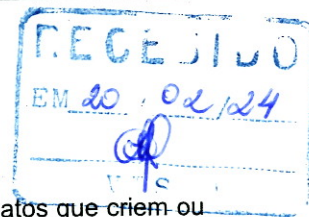 RECEBIDO
EM 20 / 02 / 24
atos que criem ou